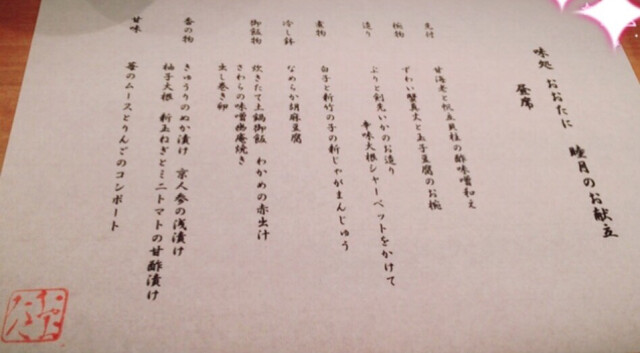 味処 おおたに 睦月のお献立
昼席
先付
甘海老と帆立貝柱の酢味噌和え
椀物
ずわい蟹真丈と玉子豆腐のお椀
造り
ぶりと剣先いかのお造り
辛味大根シャーベットをかけて
煮物
白子と新竹の子の新じゃがまんじゅう
冷し鉢
なめらか胡麻豆腐
御飯物
炊きたて土鍋御飯 わかめの赤出汁
さわらの味噌幽庵焼き
出し巻き卵
香の物
きゅうりのぬか漬け 京人参の浅漬け
柚子大根 新玉ねぎとミニトマトの甘酢漬け
甘味
苺のムースとりんごのコンポート
おおたに